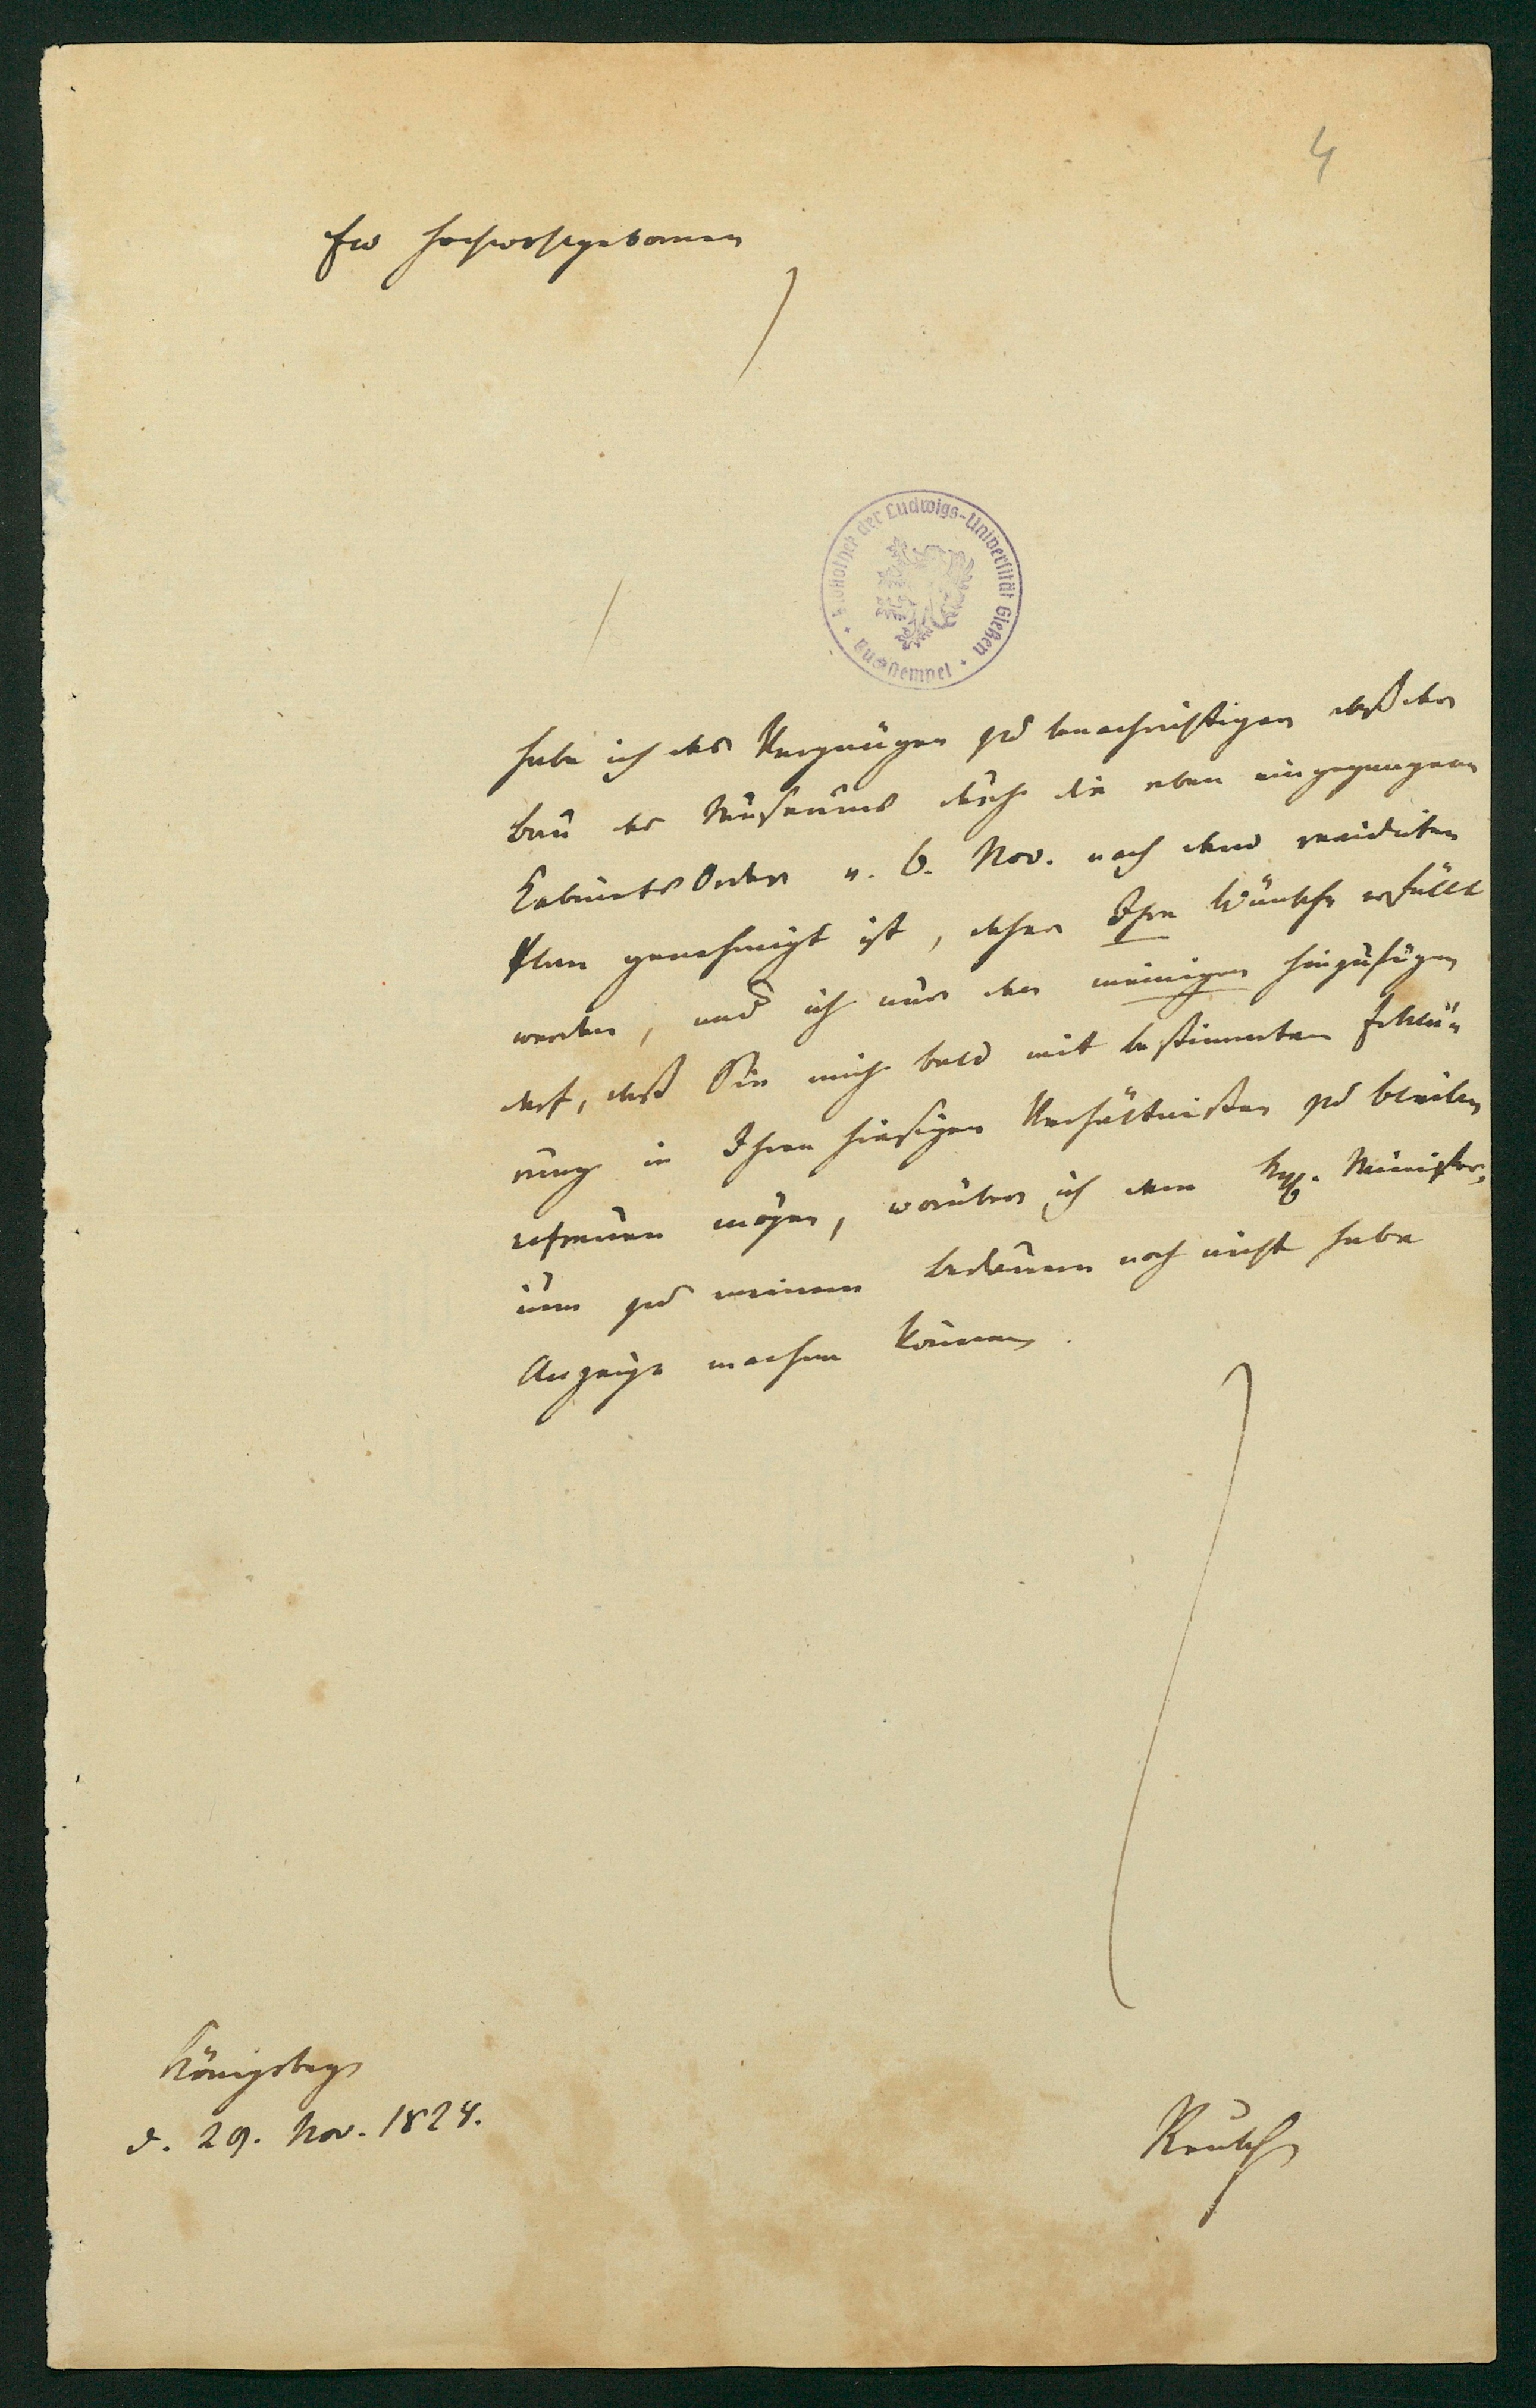 4
Ew Hochwohlgeboren
Bibliothek der Ludwigs-Universität Gießen
Tauschstempel
habe ich das Vergnügen zu benachrichtigen daß der
Bau des Museums durch die eben eingegangene
Cabinets Order v. 6. Nov. nach dem revidirten
Plan genehmigt ist, daher Ihre Wünsche erfüllt
werden, und ich nur den meinigen hinzufügen
darf, daß Sie mich bald mit bestimmten Erklä-
rung in Ihren hiesigen Verhältnißen zu bleiben
erfreuen mögen, worüber ich dem Minister-
ium zu meinem bedauern noch nicht habe
Anzeige machen können.
Königsberg
d. 29. Nov. 1824.
Reusch